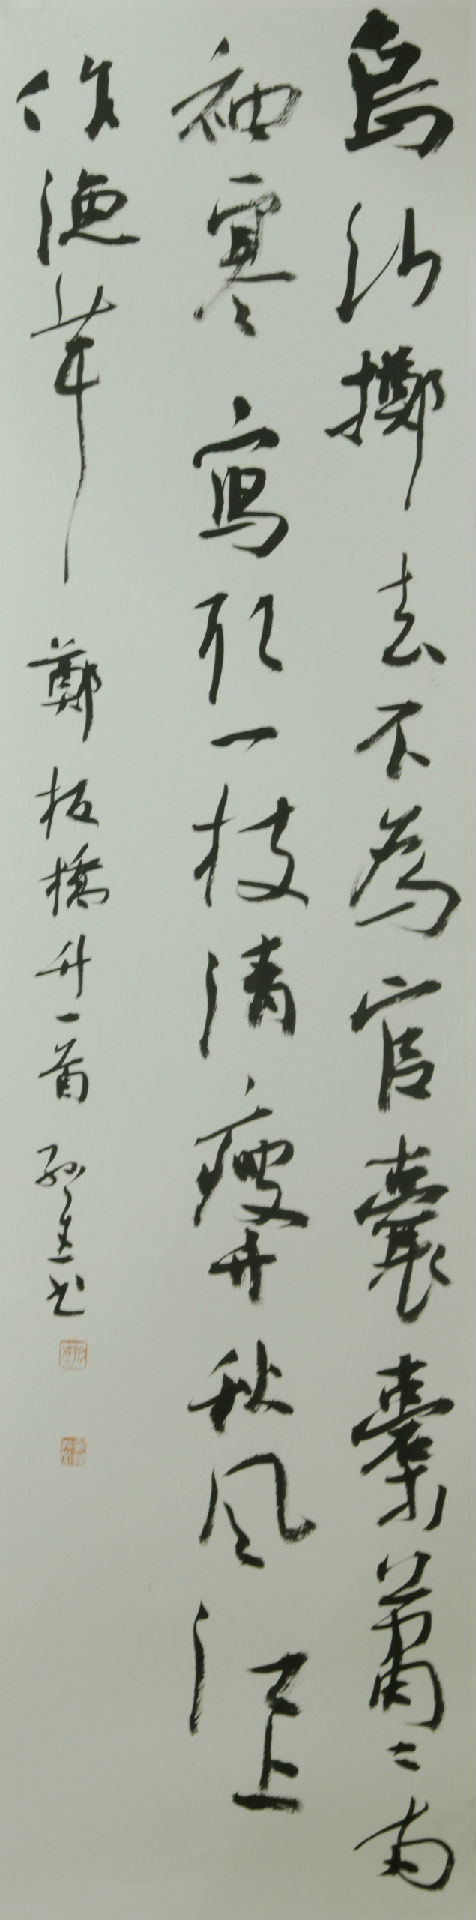 烏紗擲去不為官囊橐蕭々两
袖寒寫取一枝清瘦竹秋風江上
作漁竿
鄭板橋竹一首 书